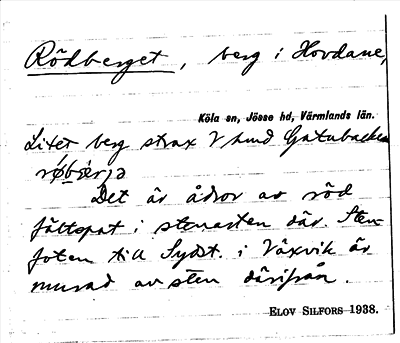 Rödberget, berg i Hovdane,
Köla sn, Jösse hd, Värmlands län.
Litet berg strax V Gatubacken
Det är ådror av röd
fältspat i stenarten där. Sten-
foten till Sydst. i Växvik är
murad av sten därifrån.
ELOV SILFORS 1938.